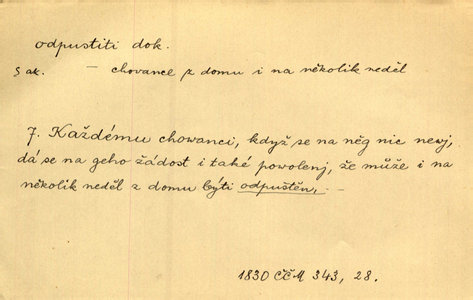 odpustiti dok.
s ak. — chovance z domu i na několik neděl
7. Každému chowanci, když se na něg nic newj,
dá se na geho žádost i také powolenj, že může i na
několik neděl z domu býti odpuštěn, . —
1830 ČČM 343, 28.